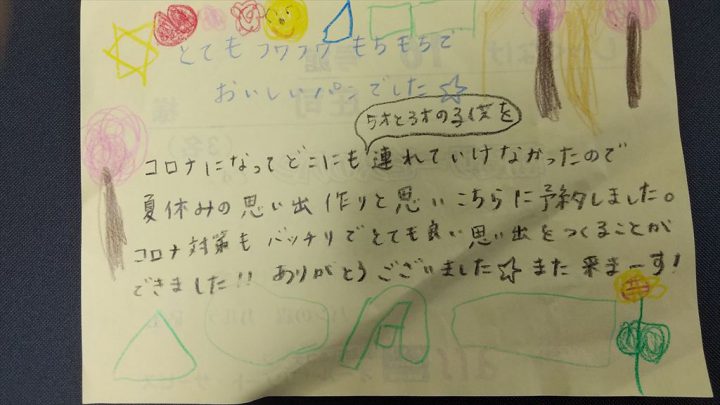 とてもフワフワもちもちで
おいしいパンでした☆
5才と3才の子供を
コロナになってどこにも連れていけなかったので
夏休みの思い出作りと思いこちらに予約しました。
コロナ対策もバッチリでとても良い思い出をつくることが
できました!! ありがとうございました☆ また来まーす!